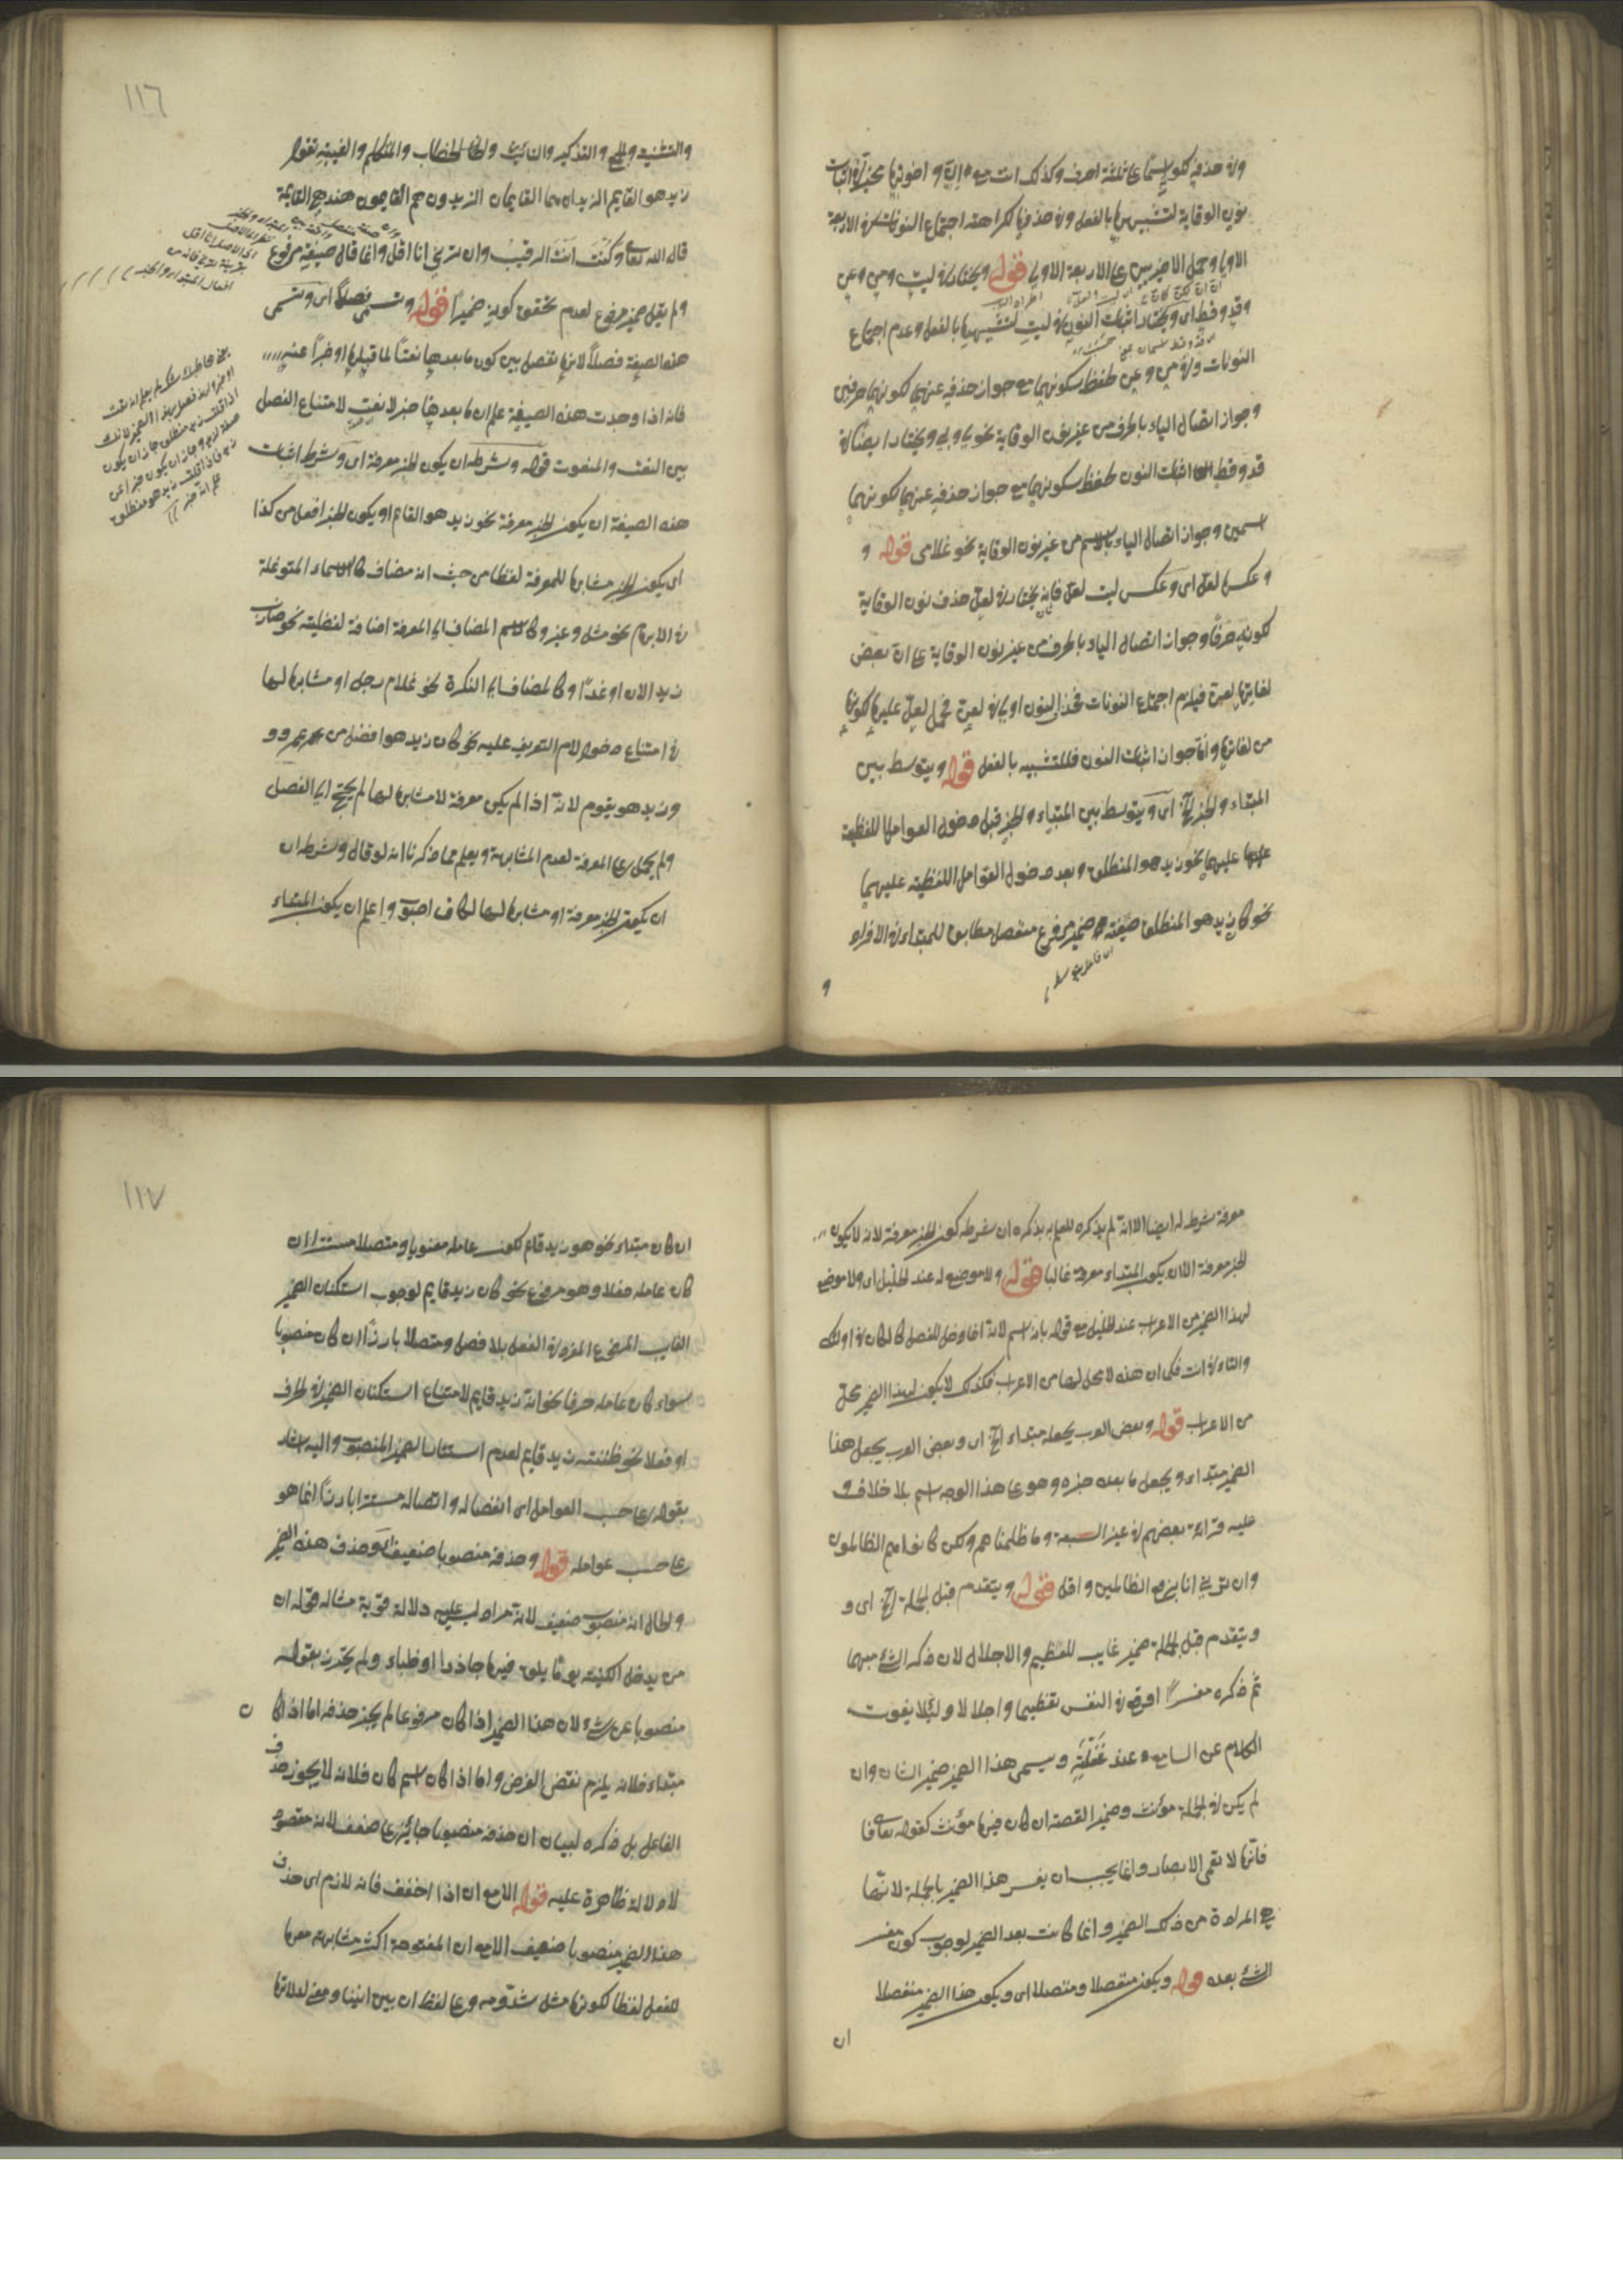 ولان حذفه لكونه اسما على ثلثة احرف وكذلك انت مع ان واخواتها مخير في اثبات
نون الوقاية لتشبيهها بالفعل وفي حذفها لكراهة اجتماع النونات في الاربعة
الاولى وحمل الاخيرين على الاربعة الاولى قوله ويختار في ليت ومن وعن
وقد وقط اى ويختار اثبات النون في ليت لتشبيهها بالفعل وعدم اجتماع
النونات وفي من وعن لحفظ سكونهما مع جواز حذفه عنهما لكونهما حرفين
وجواز اتصال الياء بالحرف من غير نون الوقاية نحو لى وبى ويختار ايضا في
قد وقط اثبات النون لحفظ سكونهما مع جواز حذفه عنهما لكونهما
اسمين وجواز اتصال الياء بالاسم من غير نون الوقاية نحو غلامى قوله و
وعكسها لعل اى وعكس ليت لعل فانه يختار في لعل حذف نون الوقاية
لكونه حرفا وجواز اتصال الياء بالحرف من غير نون الوقاية على ان بعض
لغاتها لعن فيلزم اجتماع النونات فحذف النون اولى في لعن فحمل لعل عليها لكونها
من لغاتها واما جواز اثبات النون فللتشبيه بالفعل قوله ويتوسط بين
المبتداء والخبر الخ اى ويتوسط بين المبتداء والخبر قبل دخول العوامل اللفظية
عليهما نحو زيد هو المنطلق وبعد دخول العوامل اللفظية عليهما
نحو كان زيد هو المنطلق صيغة ضمير مرفوع منفصل مطابق للمبتداء في الافراد
و
١١٦
والتثنية والجمع والتذكير والتانيث والخطاب والمتكلم والغيبة تقول
زيد هو القايم الزيدان هما القايمان الزيدون هم القايمون هند هى القايمة
قال الله تعالى كنت انت الرقيب وان ترنى انا اقل وانما قال صيغة مرفوع
ولم يقل ضمير مرفوع لعدم تحقق كونه ضميرا قوله وتسمى فصلا اى وتسمى
هذه الصيغة فصلا لانها تفصل بين كون ما بعدها نعتا لما قبلها او خبرا عنه
فانه اذا وجدت هذه الصيغة علم ان ما بعدها خبر لا نعت لامتناع الفصل
بين النعت والمنعوت قوله وشرطه ان يكون الخبر معرفة اى وشرط اثبات
هذه الصيغة ان يكون الخبر معرفة نحو زيد هو القايم او يكون الخبر افعل من كذا
اى يكون الخبر مشابها للمعرفة لفظا من حيث انه مضاف كالاسماء المتوغلة
في الابهام نحو مثل وغير وكالاسم المضاف الى المعرفة اضافة لفظية نحو ضارب
زيد الان او غدا وكالمضاف الى النكرة نحو غلام رجل او مشابها لها
في امتناع دخول لام التعريف عليه نحو كان زيد هو افضل من عمرو و
وزيد هو يقوم لانه اذا لم يكن معرفة لا مشابها لها لم يحتج الى الفصل
ولم يحمل على المعرفة لعدم المشابهة ويعلم مما ذكرنا انه لو قال وشرطه ان
ان يكون الخبر معرفة او مشابها لها لكان اصوب واعلم ان يكون المبتداء
معرفة شرط له ايضا الا انه لم يذكره للعلم به بذكره ان شرطه كون الخبر معرفة لانه لا يكون
الخبر معرفة الا ان يكون المبتداء معرفة غالبا قوله ولا موضع له عند الخليل اى ولا موضع
لهذا الضمير من الاعراب عند الخليل مع قوله بانه اسم لانه انما دخل للفصل كالكاف في اولئك
والتاء في انت فكما ان هذه لا محل لها من الاعراب فكذلك لا يكون لهذا الضمير محل
من الاعراب قوله وبعض العرب يجعله مبتداء الخ اى وبعض العرب يجعل هذا
الضمير مبتداء ويجعل ما بعده خبره وهو على هذا الوجه اسم بلا خلاف و
عليه قراءة بعضهم في غير السبعة وما ظلمناهم ولكن كانوا هم الظالمون
وان ترنى انا اقل قوله ويتقدم قبل الجملة الخ اى و
ويتقدم قبل الجملة ضمير غايب للتعظيم والاجلال لان ذكر الشئ مبهما
ثم ذكره مفسرا اوقع في النفس تعظيما واجلالا ولئلا يفوت
الكلام عن السامع عند غفلة ويسمى هذا الضمير ضمير الشان وان
لم يكن في الجملة مؤنث وضمير القصة ان كان فيها مؤنث كقوله تعالى فا
فانها لا تعمى الابصار وانما يجب ان يفسر هذا الضمير بالجملة لانها
هى المرادة من ذلك الضمير وانما كانت بعد الضمير لوجوب كون مفسر
الشئ بعده قوله ويكون منفصلا ومتصلا اى ويكون هذا الضمير منفصلا
ان
١١٧
ان كان مبتداء نحو هو زيد قام لكون عامله معنويا ومتصلا مستترا ان
كان عامله فعلا وهو مرفوع نحو كان زيد قايم لوجوب استكنان الضمير
الغايب المرفوع المفرد في الفعل بلا فصل ومتصلا بارزا ان كان منصوبا
سواء كان عامله حرفا نحو انه زيد قايم لامتناع استكنان الضمير في الحرف
او فعلا نحو ظننته زيد قايم لعدم استتار الضمير المنصوب واليه اشار
بقوله على حسب العوامل اى انفصاله واتصاله مستترا بارزا انما هو
على حسب عوامله قوله وحذفه منصوبا ضعيف اى وحذف هذه الضمير
والحال انه منصوب ضعيف لانه مراد ليس عليه دلالة قوية مثاله قوله ان
من يدخل الكنيسة يوما يلق فيها جاذرا وظباء ولم يحترز بقوله
منصوبا عن شئ لان هذا الضمير اذا كان مرفوعا لم يجز حذفه اما اذا كان
مبتداء فلانه يلزم نقض الغرض واما اذا كان اسم كان فلانه لا يجوز حذف
الفاعل بل ذكره لبيان ان حذفه منصوبا جائز على ضعف لانه مقصود
لا دلالة ظاهرة عليه قوله الا مع ان اذا خفف فانه لازم اى حذف
هذا الضمير منصوبا ضعيف الا مع ان المفتوحة اكثر مشابهة معها
للفعل لفظا لكونها مثل شد ومد وعلى لفظ ان بين انينا ومعنى لدلالتها